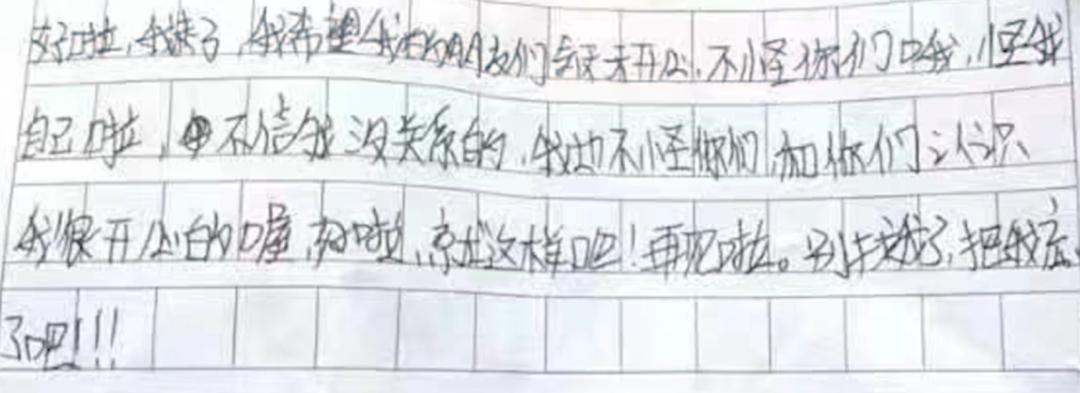 好啦，我走了，我希望我的朋友们会天天开心，不怪你们哦，怪我
自己啦，不信我没关系的，我也不怪你们，和你们认识
我很开心的喔，好啦，就这样吧！再见啦。别找我了，把我忘
了吧！！！